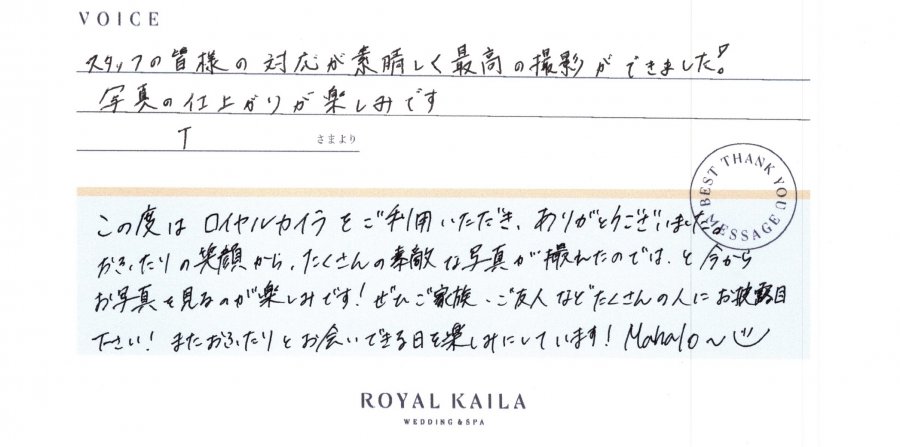 VOICE
スタッフの皆様の対応が素晴しく最高の撮影ができました!
写真の仕上がりが楽しみです
T さまより
BEST THANK YOU MESSAGE
この度はロイヤルカイラをご利用いただき、ありがとうございました。
おふたりの笑顔から、たくさんの素敵な写真が撮れたのでは、と今から
お写真を見るのが楽しみです!ぜひご家族・ご友人などたくさんの人にお披露目
下さい!またおふたりとお会いできる日を楽しみにしています!Mahalo~
ROYAL KAILA
WEDDING & SPA